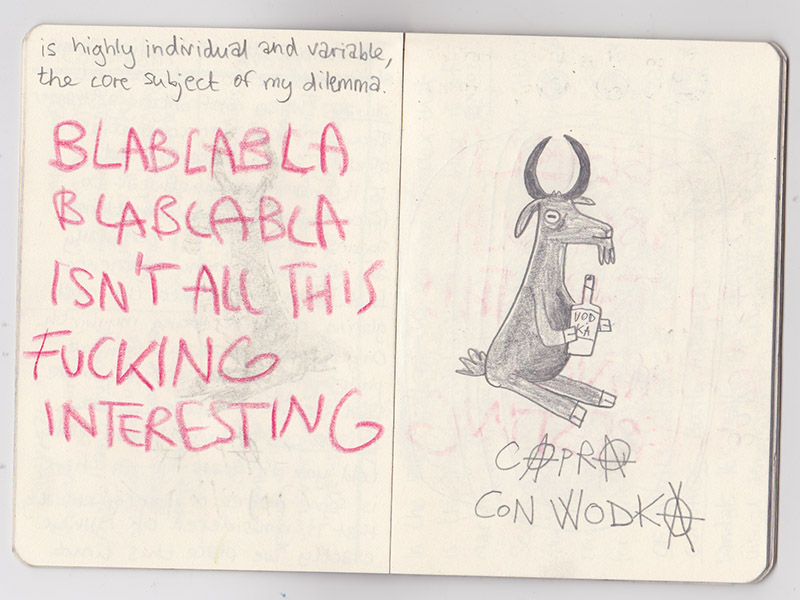 is highly individual and variable,
the core subject of my dilemma.
BLABLABLA
BLABLABLA
ISN'T ALL THIS
FUCKING
INTERESTING
VOD
KA
CAPRA
CON WODKA